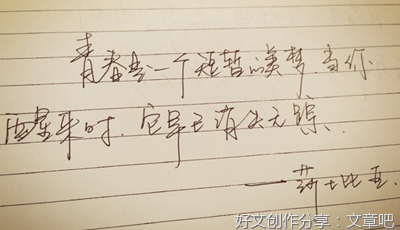 青春是一个短暂的美梦,当你
醒来时,它早已消失无踪.
——莎士比亚.
好文创作分享:文章吧